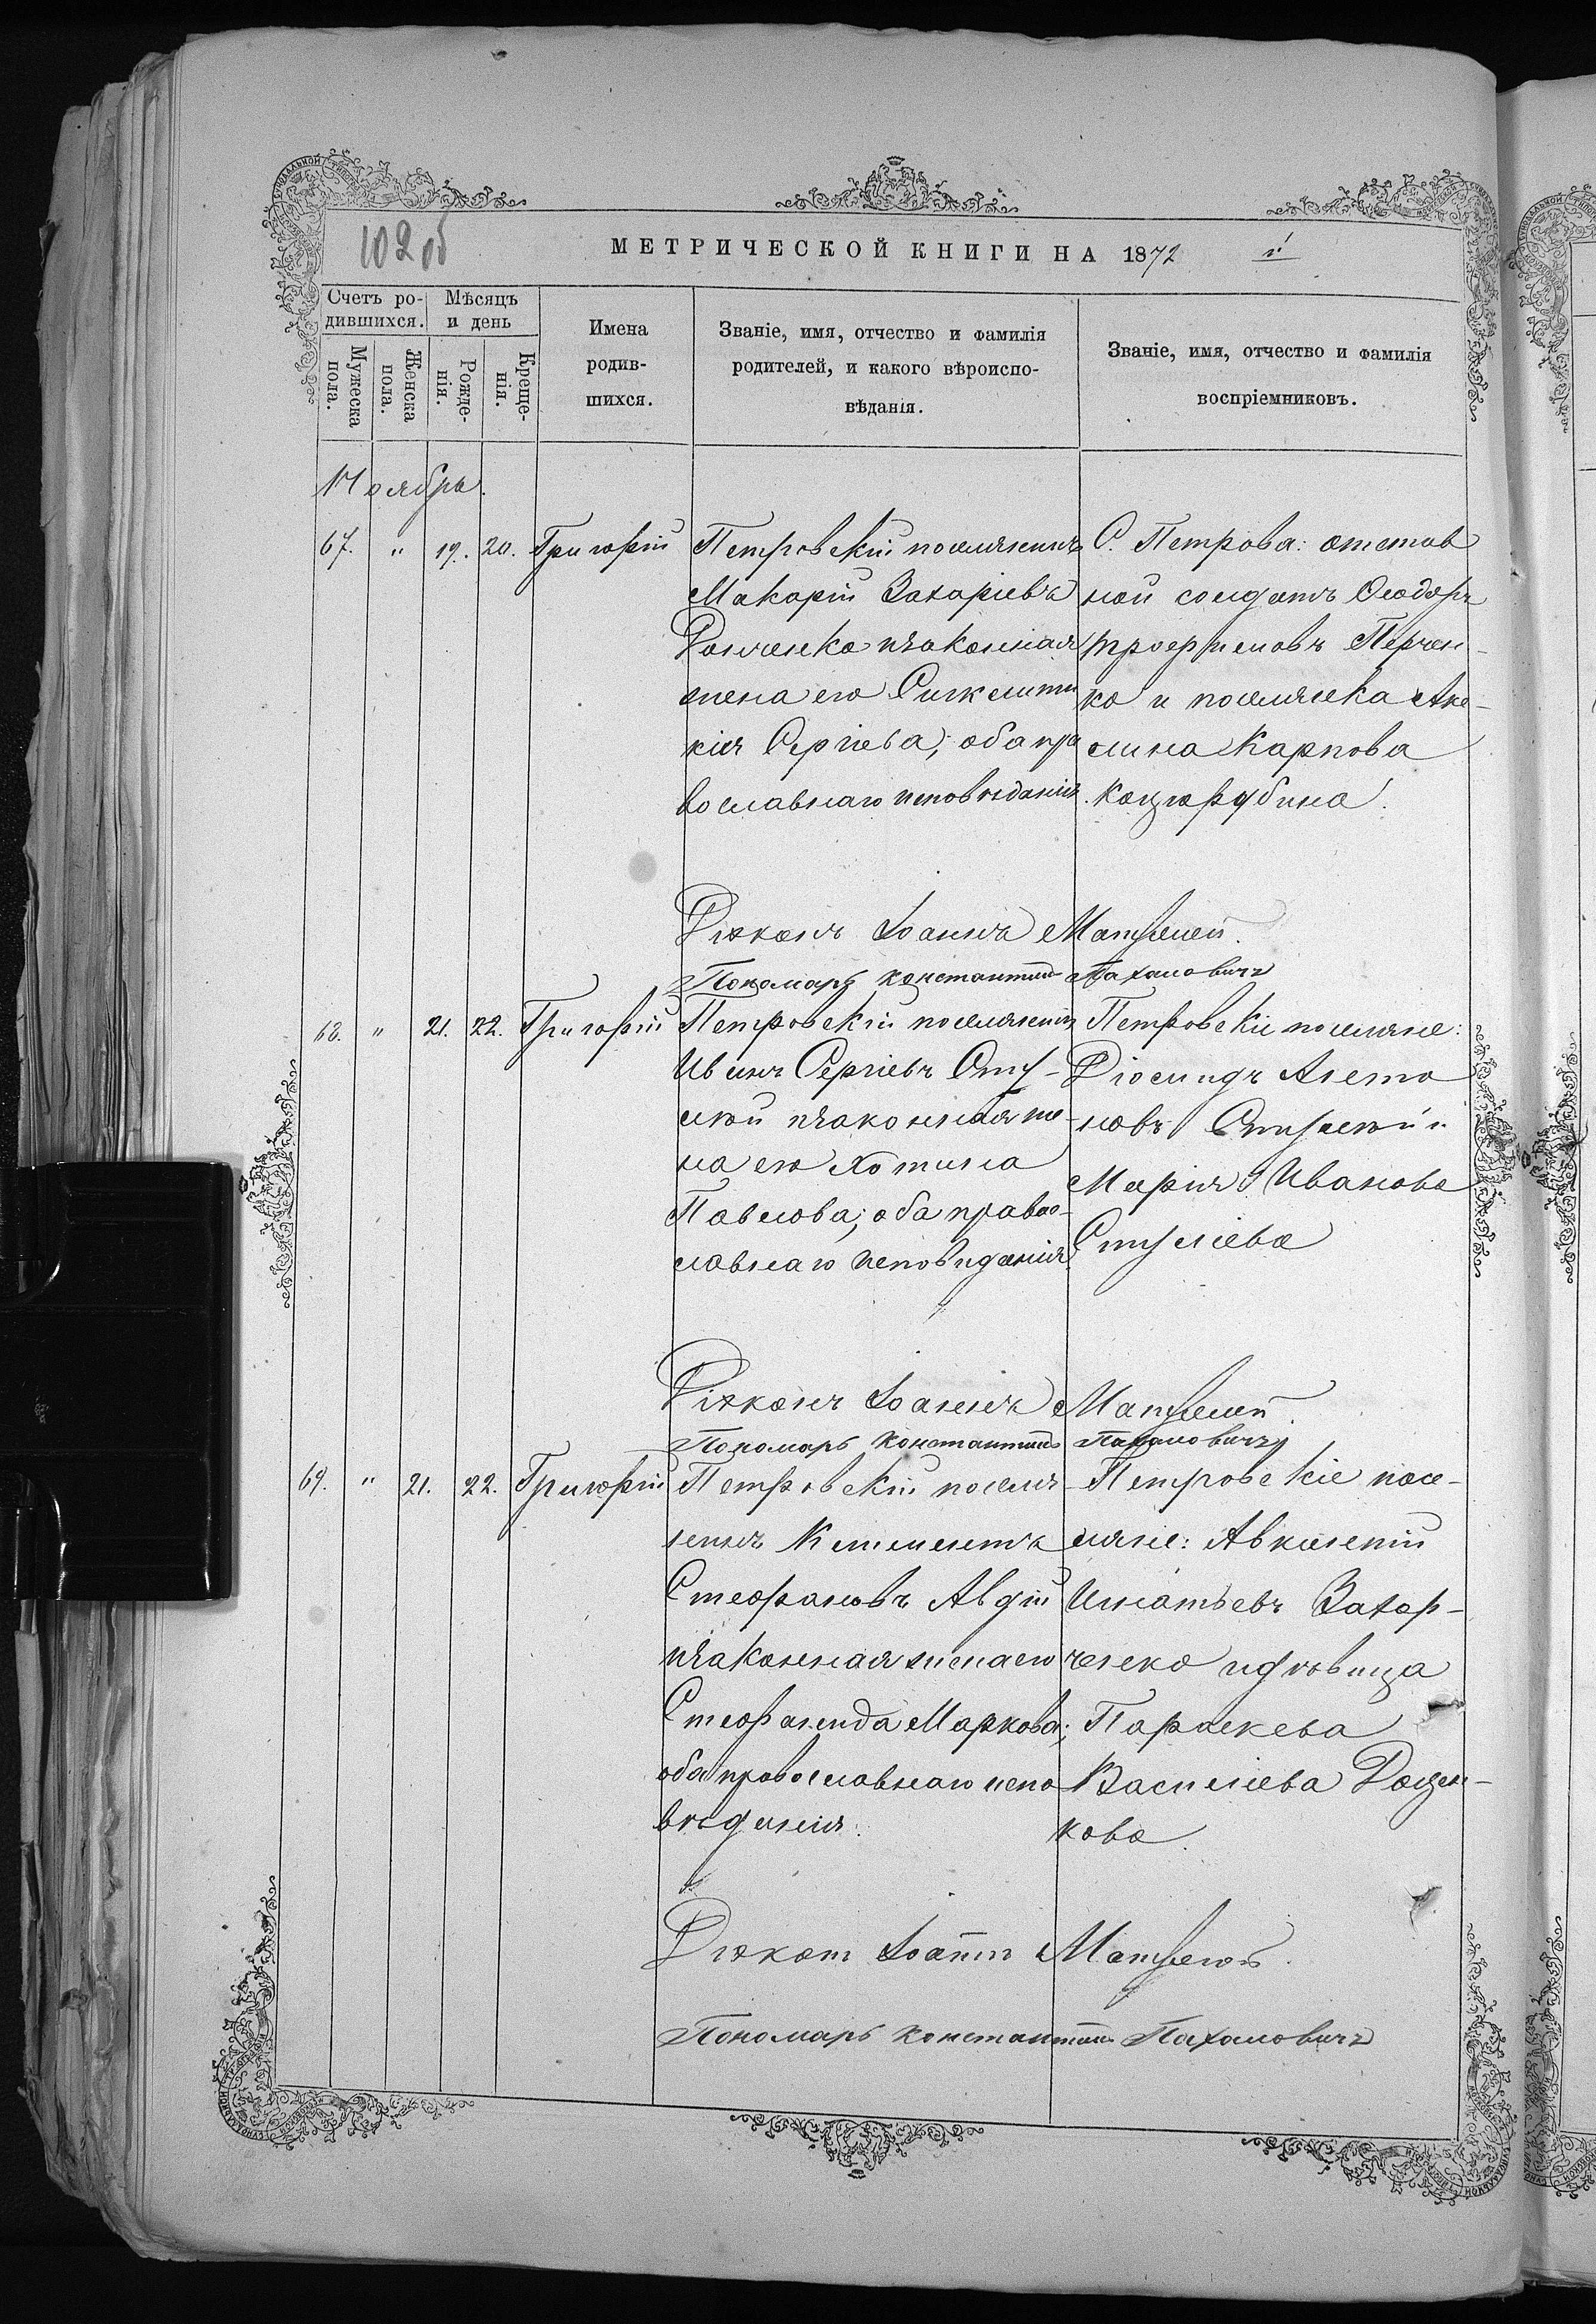 102 об
МЕТРИЧЕСКОЙ КНИГИ НА 1872 г.
Счетъ ро-
дившихся.
Мужеска
пола.
Женска
пола.
Мѣсяцъ
и день
Рожде-
нія.
Креще-
нія.
Имена
родив-
шихся.
Званіе, имя, отчество и фамилія
родителей, и какого вѣроиспо-
вѣданія.
Званіе, имя, отчество и фамилія
воспріемниковъ.
Ноябрь.
67. " 19. 20. Григорій
Петровскій поселянинъ
Макарій Захаріевъ
и законная
жена его
кія Сергіева; оба пра
вославнаго исповѣданія.
С. Петрова: отстав
ной солдатъ Ѳеодоръ
Трофимовъ
ко и поселянка Аке-
лина Карпова
Коцюрубина.
Діаконъ Іоаннъ
Пономарь Константинъ Пахаловичъ
68. " 21. 22. Григорій
Петровскій поселянинъ
Иванъ Сергіевъ Сту-
лій и законная же-
на его Хотина
Павлова; оба право-
славнаго исповиданія.
Петровскіе поселяне:
Діомидъ Анто
новъ и
Марія Иванова
Діаконъ Іоаннъ
Пономарь Константинъ Пахаловичъ
69. " 21. 22. Григорій
Петровскій поселя
нинъ Климентъ
Стефановъ Авдій
и законная жена его
Стефанида Маркова;
оба православнаго испо
вѣданія.
Петровскіе посе-
ляне: Авксентій
Игнатьевъ Захар-
ченко и дѣвица
Параскева
Василіева Доцен-
кова.
Діаконъ Іоаннъ
Пономарь Константинъ Пахаловичъ